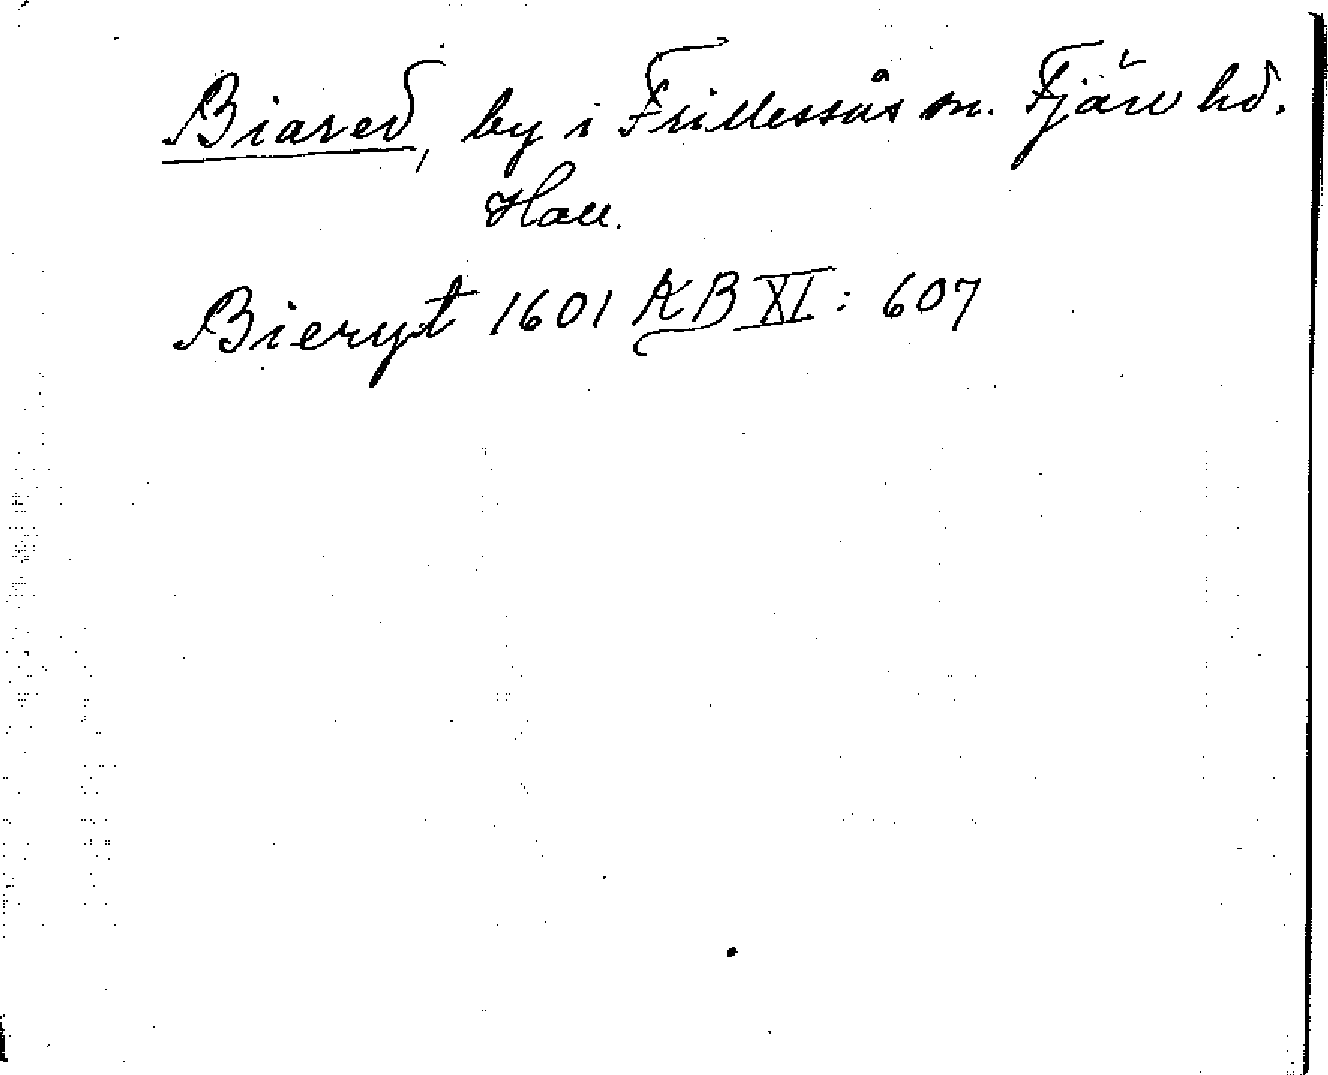 Biared, by i Frillesås sn. Fjäre hd.
Hall.
Bieryt 1601 KB XI: 607